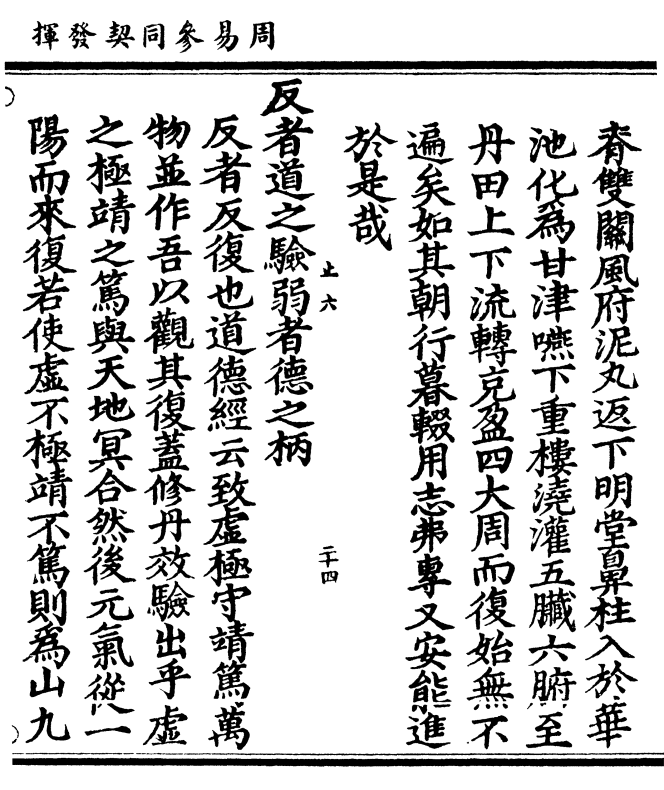 周易參同契發揮
脊雙關風府泥丸返下明堂鼻柱入於華
池化為甘津嚥下重樓澆灌五臟六腑至
丹田上下流轉充盈四大周而復始無不
遍矣如其朝行暮輟用志弗專又安能進
於是哉
止六
二十四
反者道之驗弱者德之柄
反者反復也道德經云致虛極守靖篤萬
物並作吾以觀其復蓋修丹效驗出乎虛
之極靖之篤與天地冥合然後元氣從一
陽而來復若使虛不極靖不篤則為山九